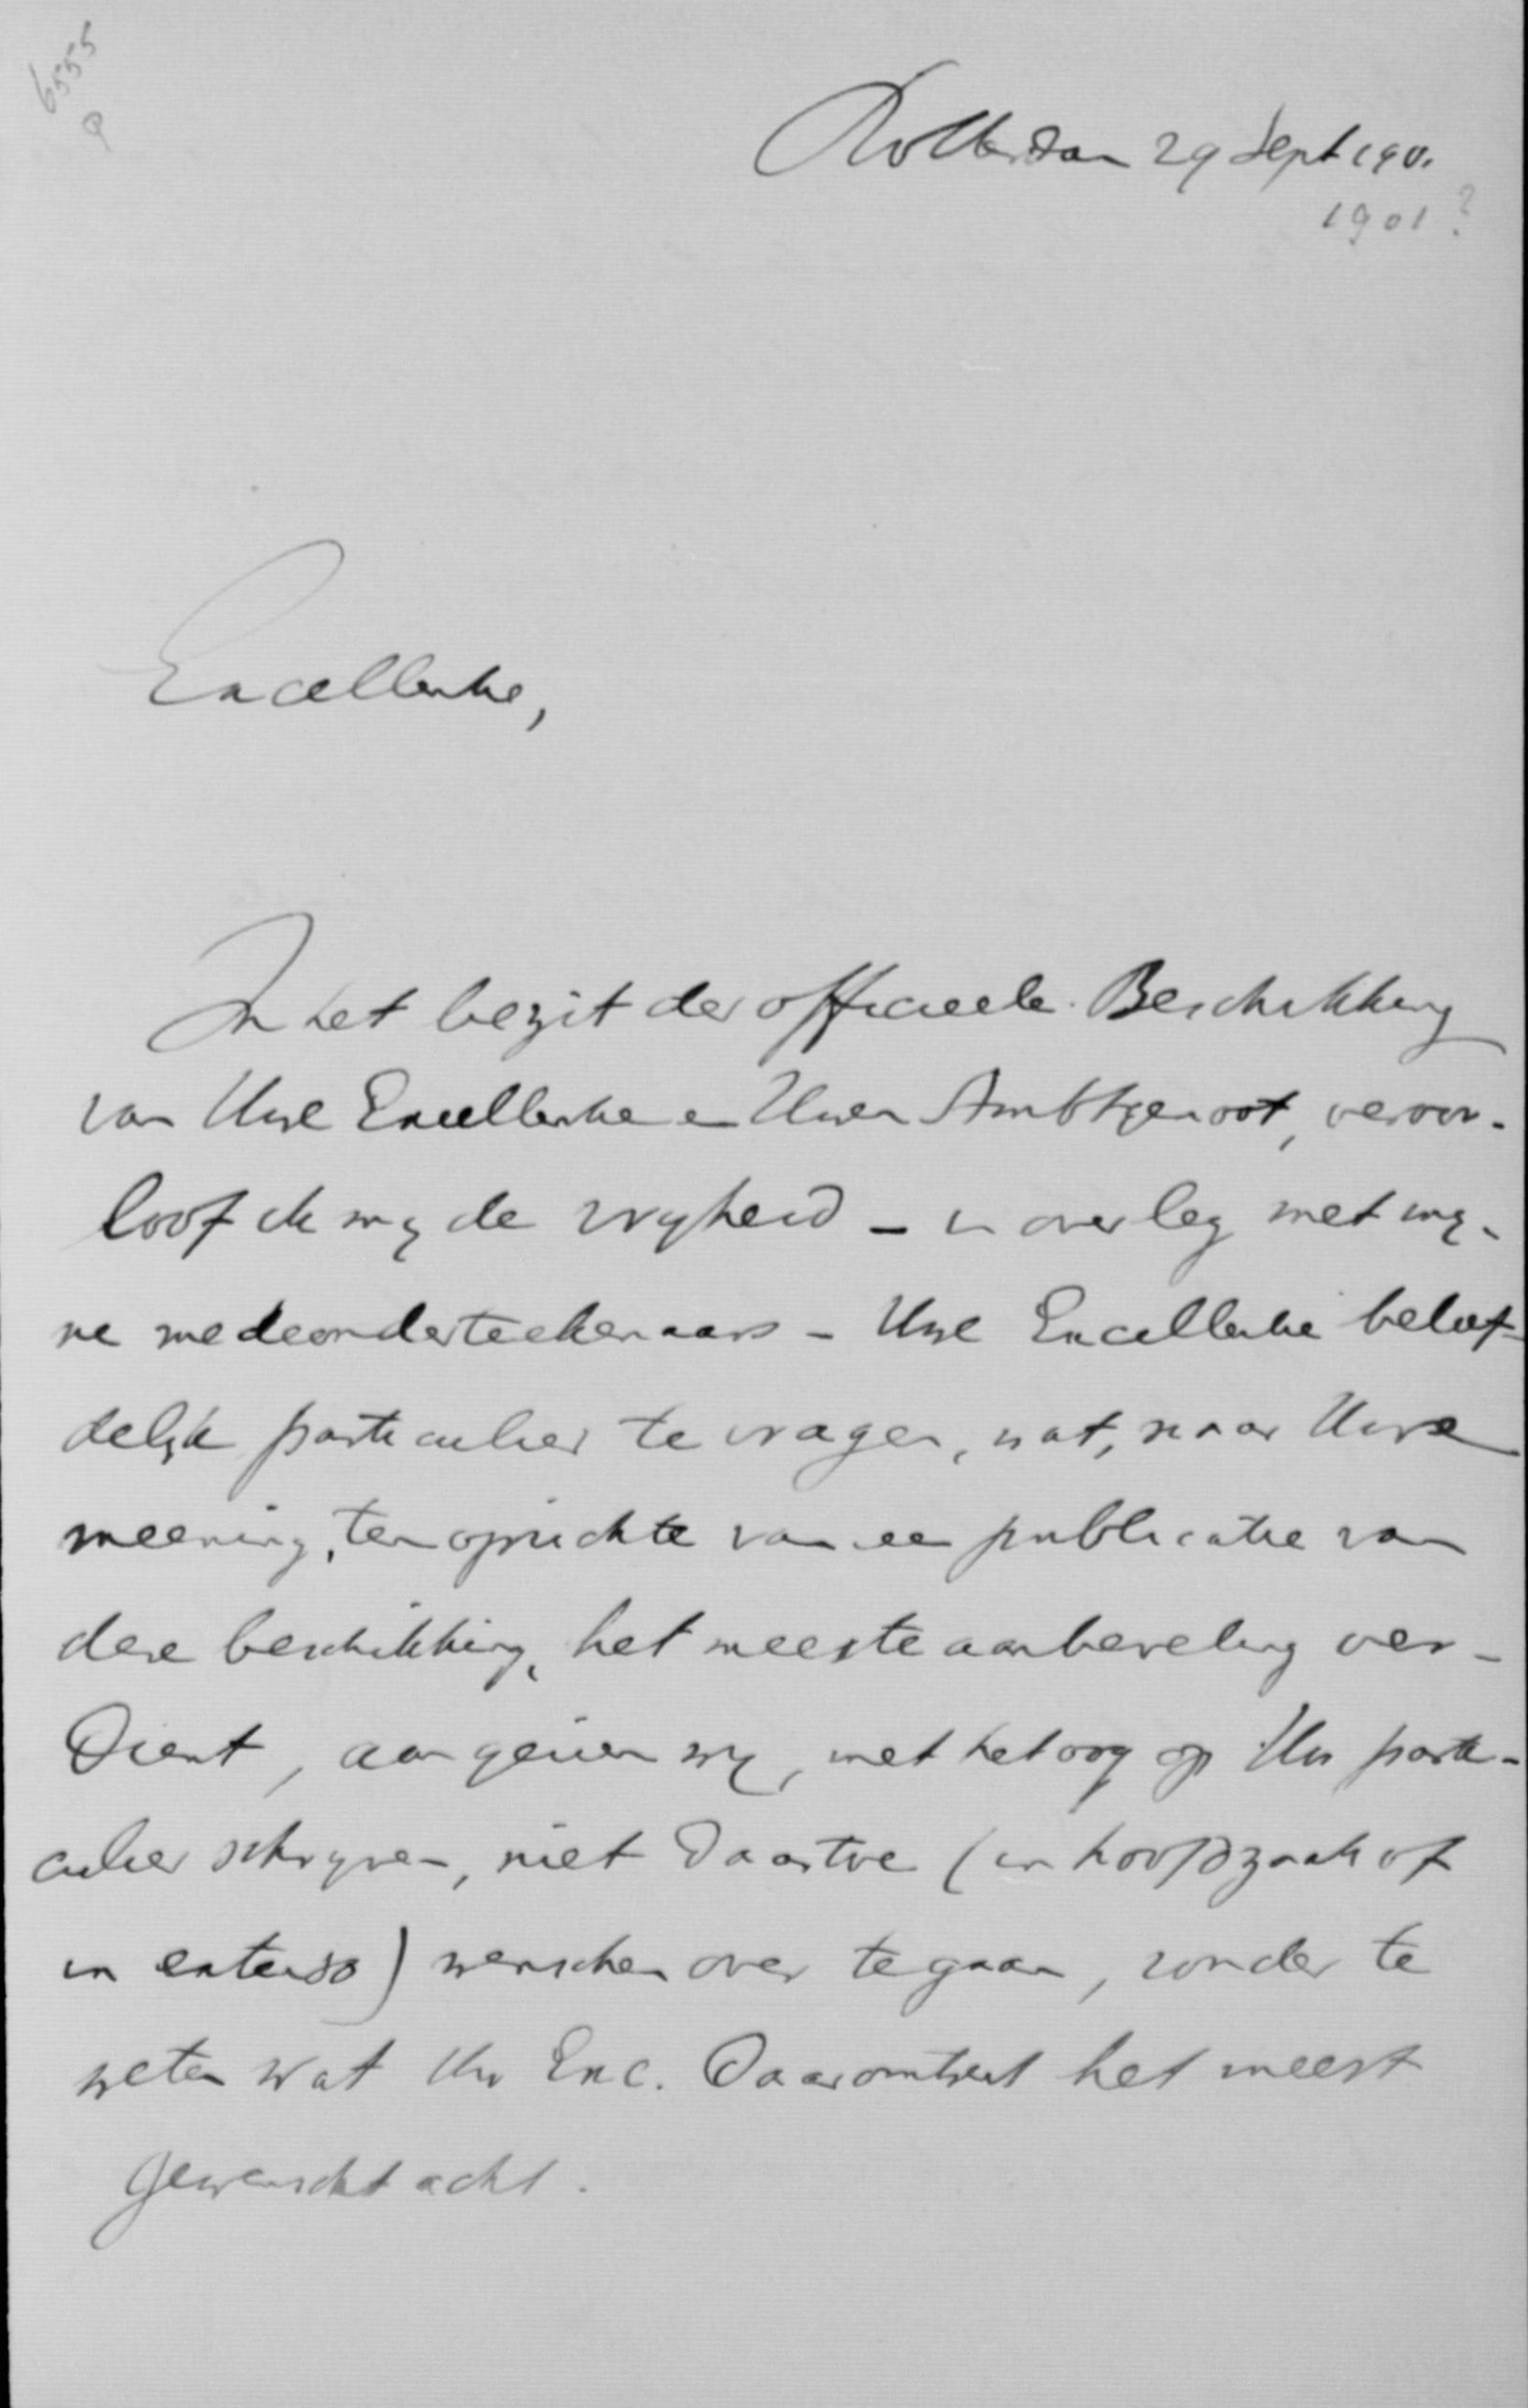 6555
Rotterdam 29 Sept 190.
1901?
Excellentie,
In het bezit der officieele Beschikking
van Uwe Excellentie en Uwen Ambtgenoot, veroor-
loof ik mij de vrijheid - in overleg met mij-
ne medeonderteekenaars - Uwe Excellentie beleef-
delijk particulier te vragen, wat, naar Uwe
meening, ten opzichte van een publicatie van
deze beschikking, het meeste aanbeveling ver-
dient, aangezien wij, met het oog op Uw parti-
culier schrijven, niet daartoe (in hoofdzaak of
in extenso) wenschen over te gaan, zonder te
weten wat Uw Exc. daaromtrent het meest
gewenscht acht.